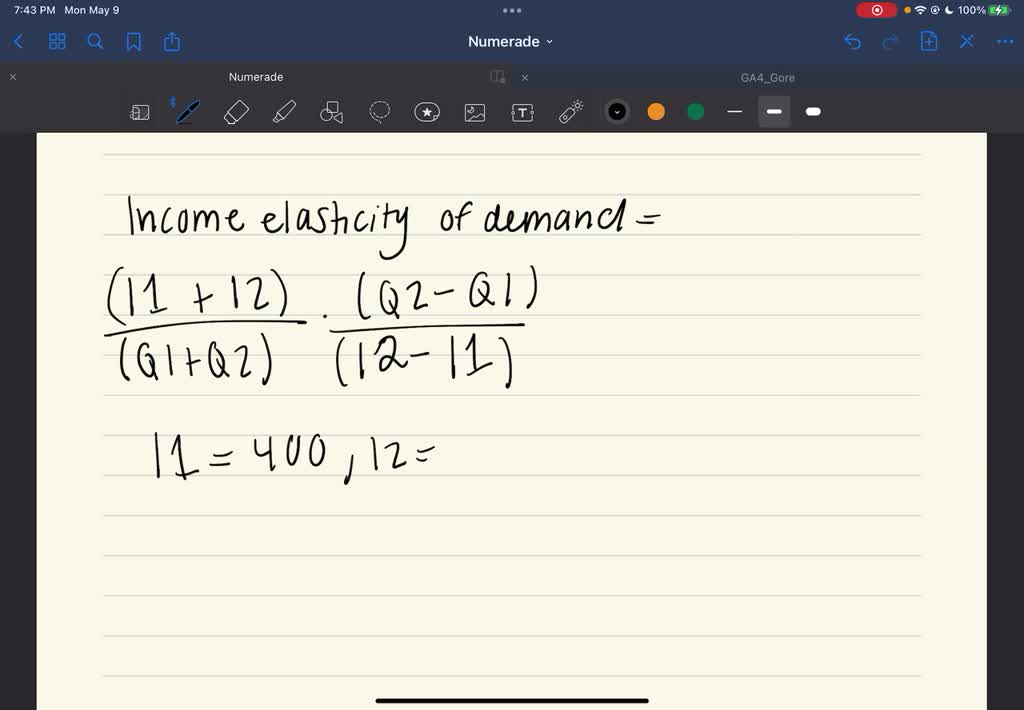 7:43 PM Mon May 9 100%
Numerade
Numerade GA4_Gore
Income elasticity of demand =
(I1 + I2) . (Q2 - Q1)
(Q1 + Q2) (I2 - I1)
I1 = 400, I2 =